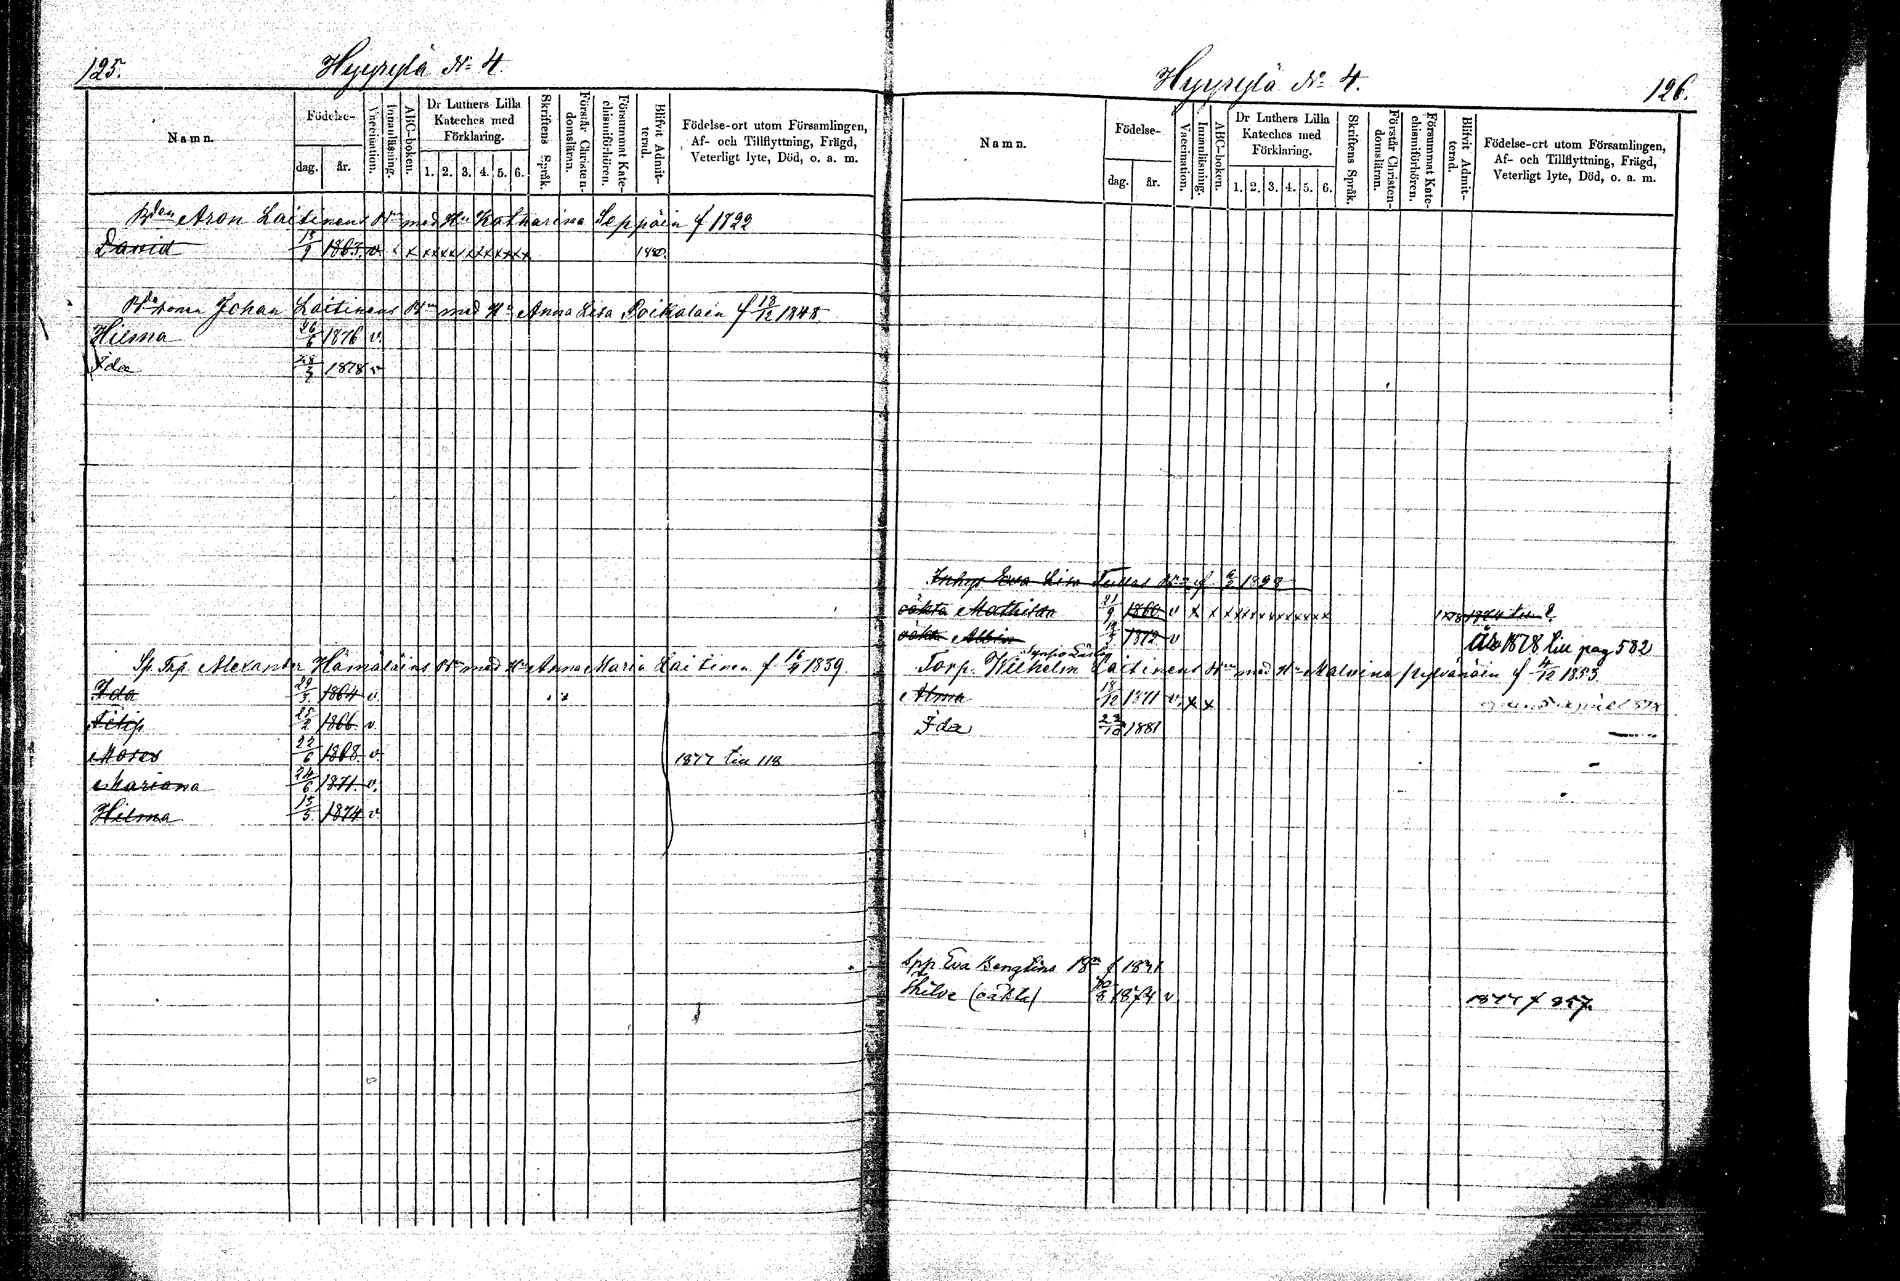 125.
Hyyrylä No 4.
Namn.
Födelse-
dag.
år.
Vaccination.
Innanläsning.
ABC-boken.
Dr Luthers Lilla
Kateches med
Förklaring.
1. 2. 3. 4. 5. 6.
Skriftens Språk.
Förstår Christen-
domsläran.
Försummat Kate-
chismiförhören.
Blifvit Admit-
terad.
Födelse-ort utom Församlingen,
Af- och Tillflyttning, Frägd,
Veterligt lyte, Död, o. a. m.
Aron Laitinens Bn med Hu Katharina Seppäin f 1822
David 15/9 1863. v. x x x x x x x x x x x x 1880.
Johan Laitinens Bn med Hu Anna Lisa Poikolain f 18/12 1848
Hilma 26/6 1876 v.
Ida 1878 v
Sp. Trp. Alexander Hämäläins Bn med Hu Anna Maria Laitinen f 1839.
Ida 29/3 1864 v.
Filip 25/2 1866 v.
Moses 22/6 1868 v.
1877 till 118
Mariana 24/6 1871 v.
Hilma 15/5 1874 v
Hyyrylä No 4.
126.
Namn.
Födelse-
dag.
år.
Vaccination.
Innanläsning.
ABC-boken.
Dr Luthers Lilla
Kateches med
Förklaring.
1. 2. 3. 4. 5. 6.
Skriftens Språk.
Förstår Christen-
domsläran.
Försummat Kate-
chismiförhören.
Blifvit Admit-
terad.
Födelse-ort utom Församlingen,
Af- och Tillflyttning, Frägd,
Veterligt lyte, Död, o. a. m.
Inhys Eva Lisa Bn f
oäkta Mathilda 21/9 1860 v x x x x x x x x x x x x
oäkta Albin 1872 v
År 1878 till pag 582
Torp. Wilhelm Laitinens Bn med Hu Malvina Pylvänäin f 4/12 1853.
Alma 18/12 1871 v. x x
Ida 1881
Spp Eva Bengtins Bn f
(oäkta) 1874 v
1877 f 857.